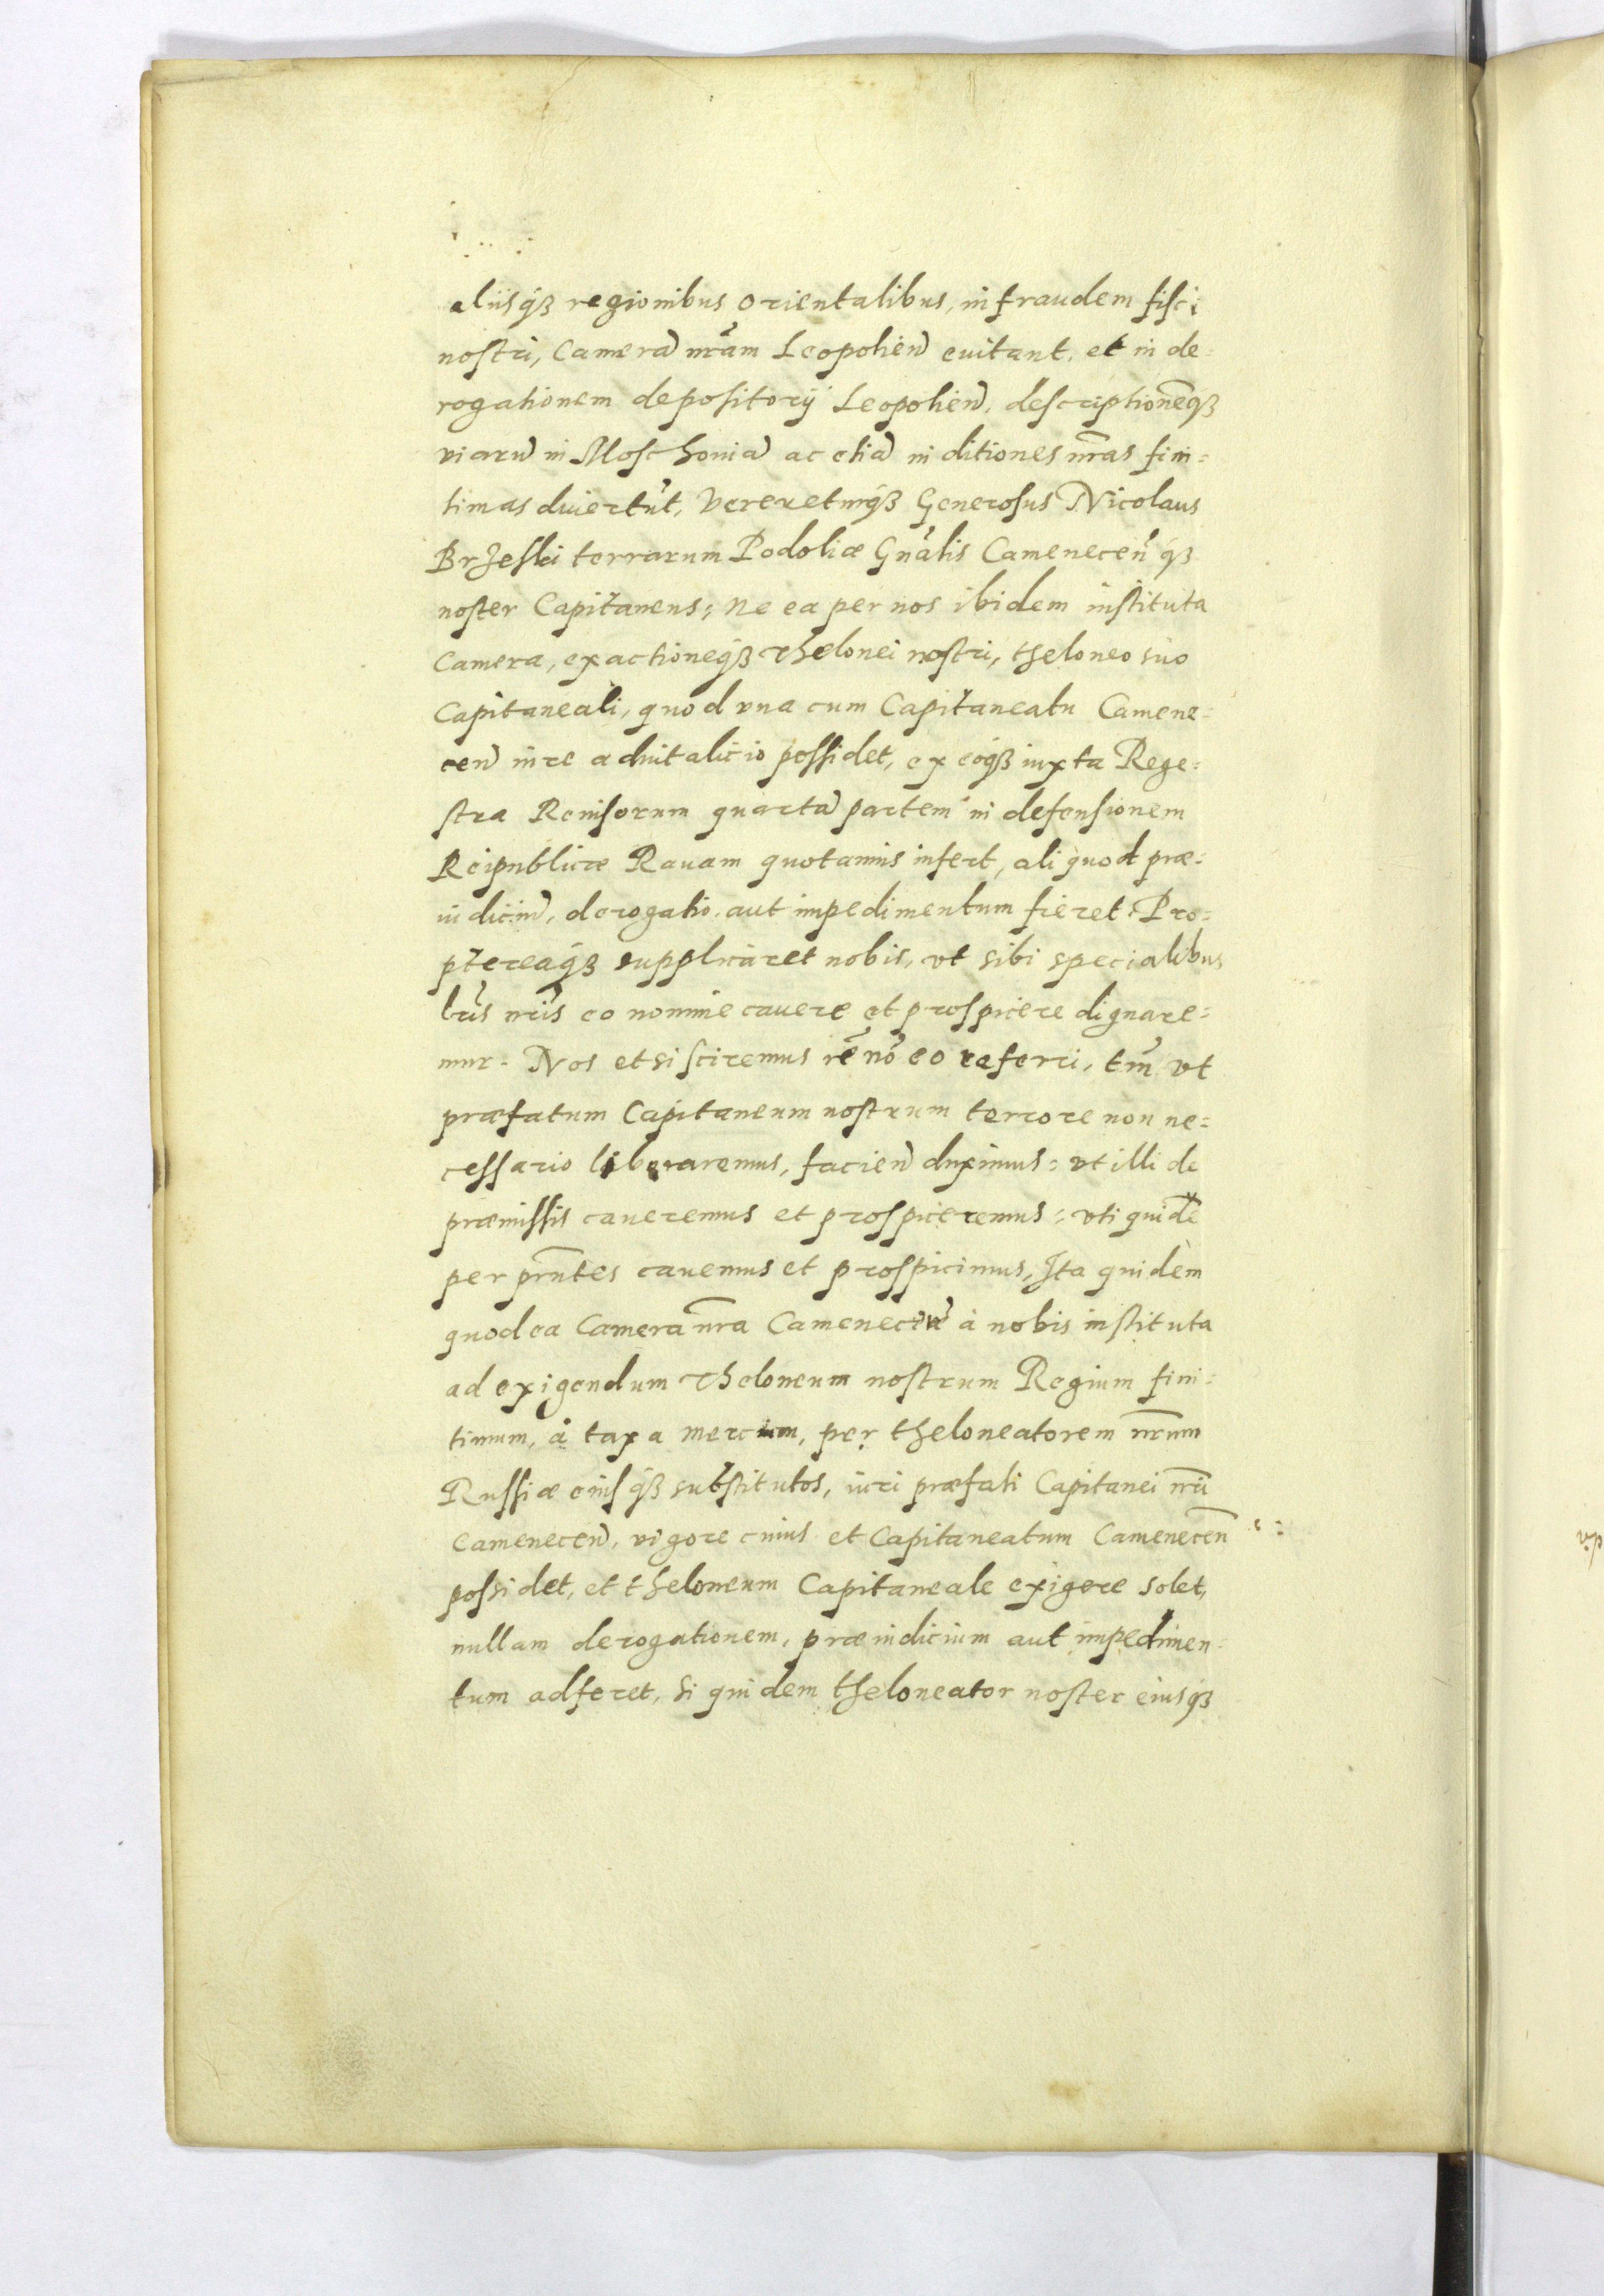 aliisq́ꝫ regionibus orientalibus, in fraudem fisci
nostri, Camerã nrãm Leopolieñ euitant, et in de=
rogationem depositorij Leopolieñ, descriptionẽq́ꝫ
viarũ in Moschoniã ac etiã in ditiones nr̃as fini=
timas diuertũt, Verereturq́ꝫ Generosus Nicolaus
Brzeski terrarum Podoliæ Gnãlis Cameneceñ q́ꝫ
noster Capitaneus; ne ea per nos ibidem instituta
Camera, exactioneq́ꝫ Thelonei nostri, theloneo suo
Capitaneali, quod vna cum Capitaneatu Camene=
ceñ iure aduitalicio possidet, ex eoq́ꝫ iuxta Rege=
stra Reuisorum quartã partem in defensionem
Reipublicæ Rauam quotannis infert, aliquod præ=
iudiciũ, derogatio, aut impedimentum fieret. Pro=
ptereaq́ꝫ supplicaret nobis, vt sibi specialibus
lr̃is nr̃is eo nomine cauere et prospicere dignare=
mur. Nos etsi sciremus rẽ nõ eo referri, tm̃ vt
præfatum Capitaneum nostrum terrore non ne=
cessario liberaremus, facieñ duximus: vt illi de
præmissis caueremus et prospiceremus; vti quidẽ
per prñtes cauemus et prospicimus, Ita quidem
quod ea Camera nr̃a Cameneceñ à nobis instituta
ad exigendum Theloneum nostrum Regium fini=
timum, à taxa mercium, per theloneatorem nr̃um
Russiæ eiusq́ꝫ substitutos, iuri præfati Capitanei nr̃i
Cameneceñ, vigore cuius et Capitaneatum Cameneceñ
possidet, et theloneum Capitaneale exigere solet,
nullam derogationem, præiudicium aut impedimen=
tum adferet, si quidem theloneator noster eiusq́ꝫ